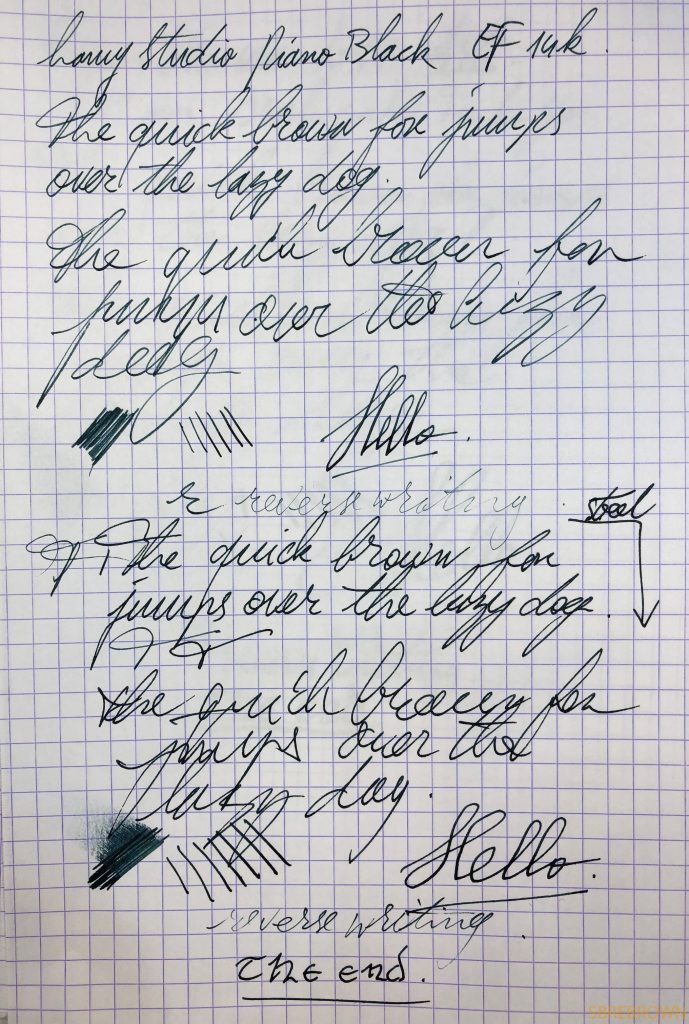 Lamy Studio Piano Black EF 14k.
The quick brown fox jumps
over the lazy dog.
The quick brown fox
jumps over the lazy
dog
Hello.
reverse writing.
steel
The quick brown fox
jumps over the lazy dog.
the quick brown fox
jumps over the
lazy dog.
Hello.
reverse writing.
The end.
SBREBROWN